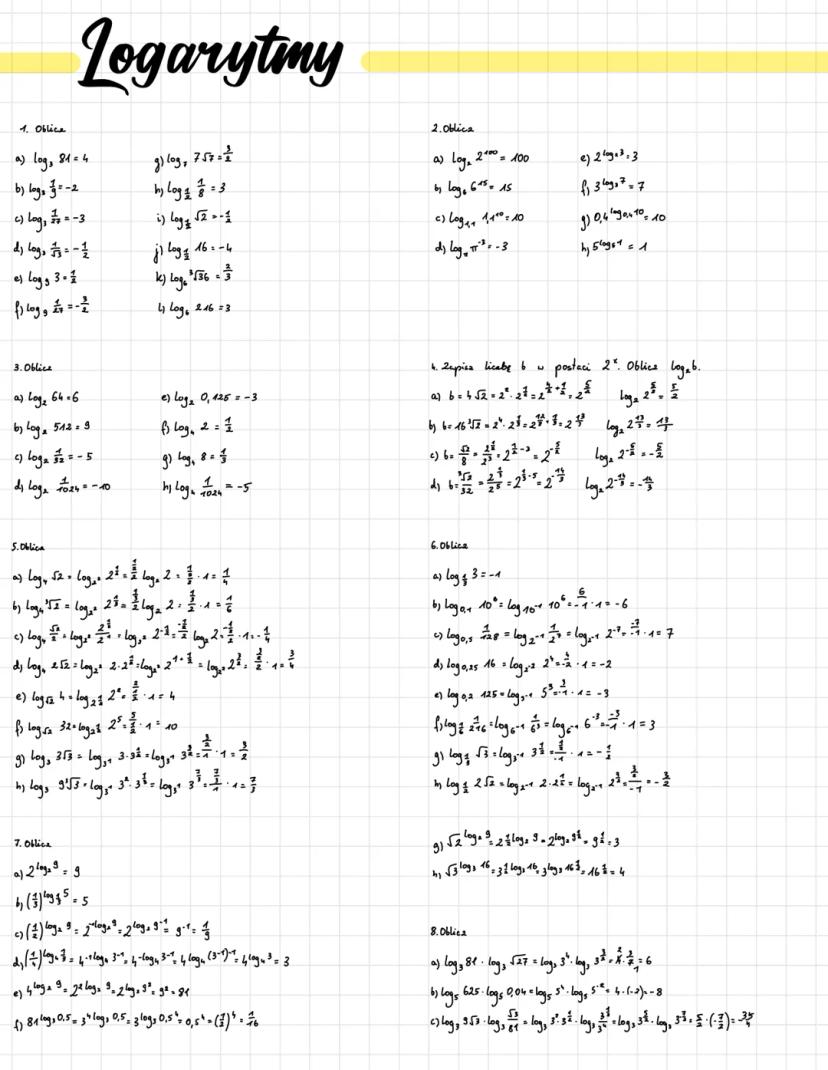 Logarytmy
1. Oblicz
a) log₃ 81 = 4
b) log₃ 1/9 = -2
c) log₃ 1/27 = -3
d) log₃ 1/√3 = -1/2
e) log₉ 3 = 1/2
f) log₉ 1/27 = -3/2
g) log₇ 7√7 = 3/2
h) log_{1/2} 1/8 = 3
i) log_{1/2} √2 = -1/2
j) log_{1/2} 16 = -4
k) log₆ ³√36 = 2/3
l) log₆ 216 = 3
2. Oblicz
a) log₂ 2¹⁰⁰ = 100
b) log₆ 6¹⁵ = 15
c) log_{1,1} 1,1¹⁰ = 10
d) log_π π⁻³ = -3
e) 2^{log₂ 3} = 3
f) 3^{log₃ 7} = 7
g) 0,4^{log_{0,4} 10} = 10
h) 5^{log₅ 1} = 1
3. Oblicz
a) log₂ 64 = 6
b) log₂ 512 = 9
c) log₂ 1/32 = -5
d) log₂ 1/1024 = -10
e) log₂ 0,125 = -3
f) log₄ 2 = 1/2
g) log₄ 8 = 1/3
h) log₄ 1/1024 = -5
4. Zapisz liczbę b w postaci 2ˣ. Oblicz log₂b.
a) b = 4√2 = 2² · 2^{1/2} = 2^{4/2 + 1/2} = 2^{5/2} log₂ 2^{5/2} = 5/2
b) b = 16 ³√2 = 2⁴ · 2^{1/3} = 2^{12/3 + 1/3} = 2^{13/3} log₂ 2^{13/3} = 13/3
c) b = √2/8 = 2^{1/2}/2³ = 2^{1/2 - 3} = 2^{-5/2} log₂ 2^{-5/2} = -5/2
d) b = ³√2/32 = 2^{1/3}/2⁵ = 2^{1/3 - 5} = 2^{-14/3} log₂ 2^{-14/3} = -14/3
5. Oblicz
a) log₄ √2 = log_{2²} 2^{1/2} = (1/2)/2 log₂ 2 = (1/2)/2 · 1 = 1/4
b) log₄ ³√2 = log_{2²} 2^{1/3} = (1/3)/2 log₂ 2 = (1/3)/2 · 1 = 1/6
c) log₄ √2/2 = log_{2²} 2^{1/2}/2¹ = log_{2²} 2^{-1/2} = (-1/2)/2 log₂ 2 = (-1/2)/2 · 1 = -1/4
d) log₄ 2√2 = log_{2²} 2·2^{1/2} = log_{2²} 2^{1 + 1/2} = log_{2²} 2^{3/2} = (3/2)/2 · 1 = 3/4
e) log_{√2} 4 = log_{2^{1/2}} 2² = 2/(1/2) · 1 = 4
f) log_{√2} 32 = log_{2^{1/2}} 2⁵ = 5/(1/2) · 1 = 10
g) log₃ 3√3 = log_{3¹} 3·3^{1/2} = log_{3¹} 3^{3/2} = (3/2)/1 · 1 = 3/2
h) log₃ 9 ³√3 = log_{3¹} 3² · 3^{1/3} = log_{3¹} 3^{7/3} = (7/3)/1 · 1 = 7/3
6. Oblicz
a) log_{1/3} 3 = -1
b) log_{0,1} 10⁶ = log_{10⁻¹} 10⁶ = 6/-1 · 1 = -6
c) log_{0,5} 1/128 = log_{2⁻¹} 1/2⁷ = log_{2⁻¹} 2⁻⁷ = -7/-1 · 1 = 7
d) log_{0,25} 16 = log_{2⁻²} 2⁴ = 4/-2 · 1 = -2
e) log_{0,2} 125 = log_{5⁻¹} 5³ = 3/-1 · 1 = -3
f) log_{1/6} 1/216 = log_{6⁻¹} 1/6³ = log_{6⁻¹} 6⁻³ = -3/-1 · 1 = 3
g) log_{1/3} √3 = log_{3⁻¹} 3^{1/2} = (1/2)/-1 · 1 = -1/2
h) log_{1/2} 2√2 = log_{2⁻¹} 2·2^{1/2} = log_{2⁻¹} 2^{3/2} = (3/2)/-1 = -3/2
7. Oblicz
a) 2^{log₂ 9} = 9
b) (1/3)^{log_{1/3} 5} = 5
c) (1/2)^{log₂ 9} = 2^{-log₂ 9} = 2^{log₂ 9⁻¹} = 9⁻¹ = 1/9
d) (1/4)^{log₄ 1/3} = 4^{-1 log₄ 3⁻¹} = 4^{-log₄ 3⁻¹} = 4^{log₄ (3⁻¹)⁻¹} = 4^{log₄ 3} = 3
e) 4^{log₂ 9} = 2^{2 log₂ 9} = 2^{log₂ 9²} = 9² = 81
f) 81^{log₃ 0,5} = 3^{4 log₃ 0,5} = 3^{log₃ 0,5⁴} = 0,5⁴ = (1/2)⁴ = 1/16
g) √2^{log₂ 9} = 2^{1/2 log₂ 9} = 2^{log₂ 9^{1/2}} = 9^{1/2} = 3
h) √3^{log₃ 16} = 3^{1/2 log₃ 16} = 3^{log₃ 16^{1/2}} = 16^{1/2} = 4
8. Oblicz
a) log₃ 81 · log₃ √27 = log₃ 3⁴ · log₃ 3^{3/2} = 4 · 3/2 = 6
b) log₅ 625 · log₅ 0,04 = log₅ 5⁴ · log₅ 5⁻² = 4 · (-2) = -8
c) log₃ 9√3 · log₃ √3/81 = log₃ 3²·3^{1/2} · log₃ 3^{1/2}/3⁴ = log₃ 3^{5/2} · log₃ 3^{7/2} = 5/2 · (-7/2) = -35/4